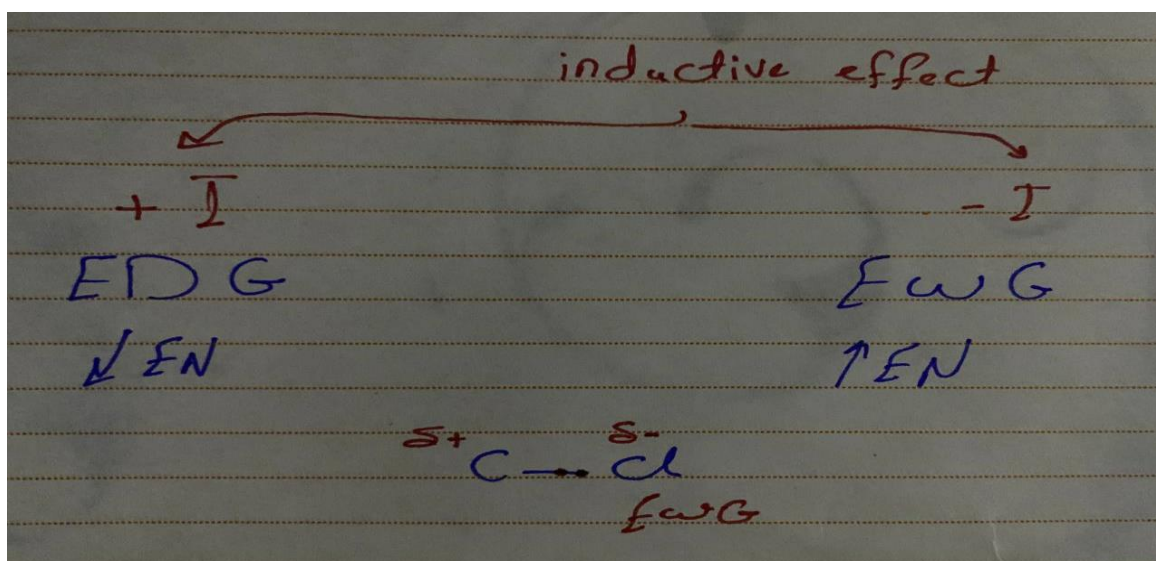 inductive effect
+ I - I
EDG EWG
↓ EN ↑ EN
δ+ δ-
C — Cl
EWG